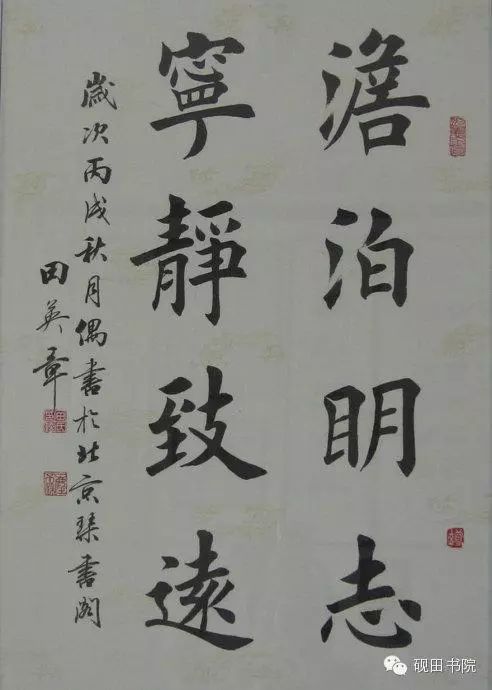 澹泊明志
寧靜致遠
歲次丙戌秋月偶書於北京琴書閣
田英章
砚田书院